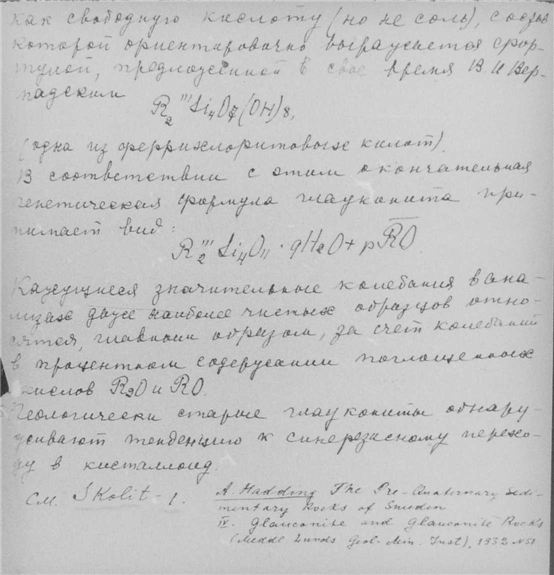 как свободную кислоту (но не соль), состав
которой ориентировочно выражается фор-
мулой, предложенной в свое время В.И Вер-
надским
R₂''' Si₄O₇(OH)₈,
(одна из феррихлоритовых кислот).
В соответствии с этим окончательная
генетическая формула глауконита при-
нимает вид:
R₂''' Si₄O₁₁ · qH₂O + pRO
Кажущиеся значительные колебания в ана-
лизах даже наиболее чистых образцов отно-
сятся, главным образом, за счет колебаний
в процентном содержании поглощенных
окислов R₂O и RO.
Геологически старые глаукониты обнару-
живают тенденцию к синерезисному перехо-
ду в кисталлоид.
См. Skolit - 1. A. Hadding The Pre-Quaternary Sedi-
mentary Rocks of Sweden
IV. glauconite and glauconite Rocks
(Medd. Lunds Geol-Min. Inst), 1932 N51